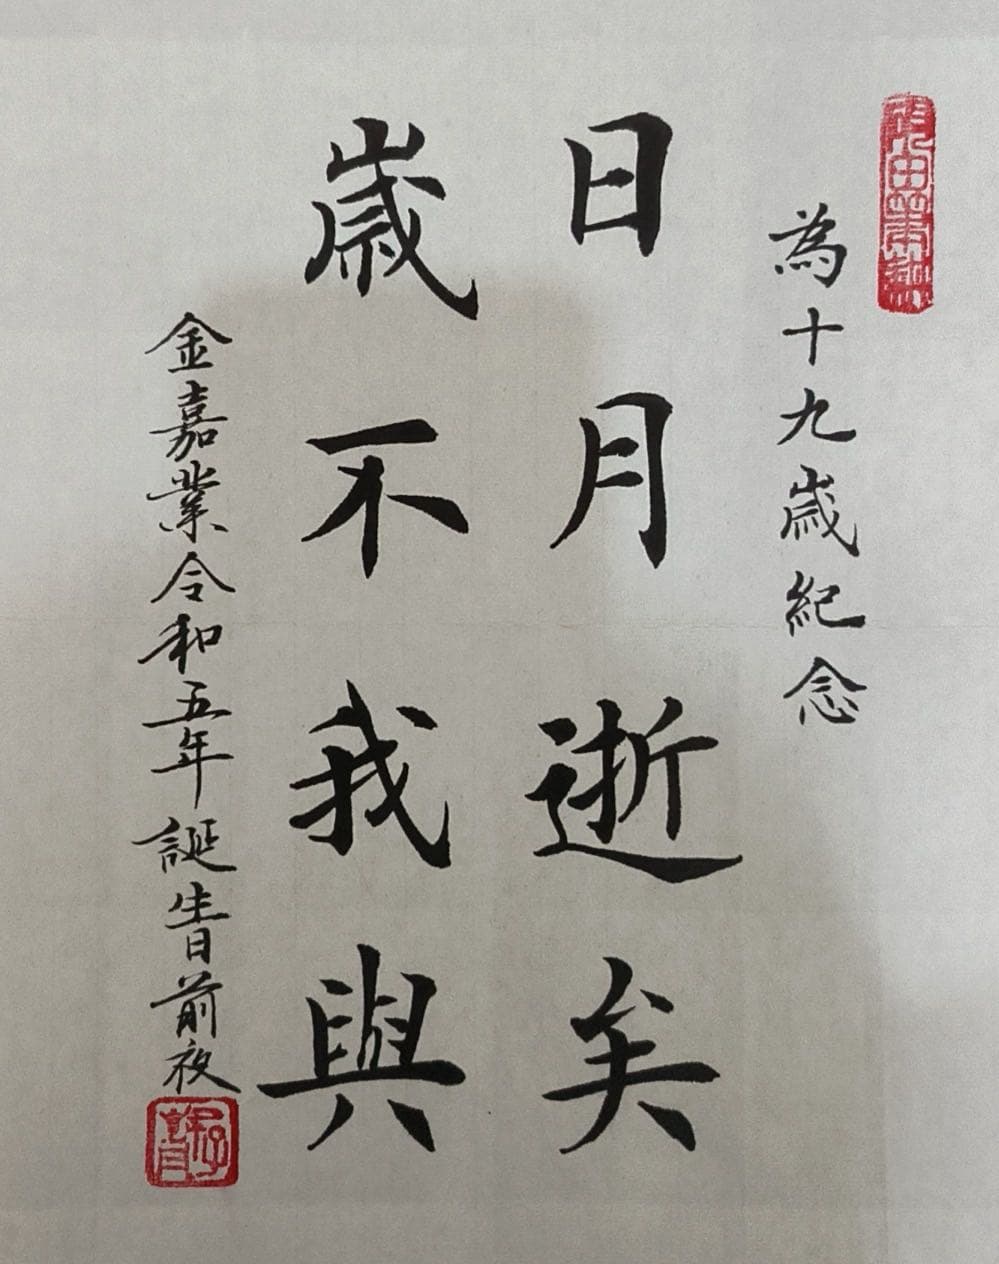 為十九歲紀念
日月逝矣
歲不我與
金嘉業令和五年誕生日前夜